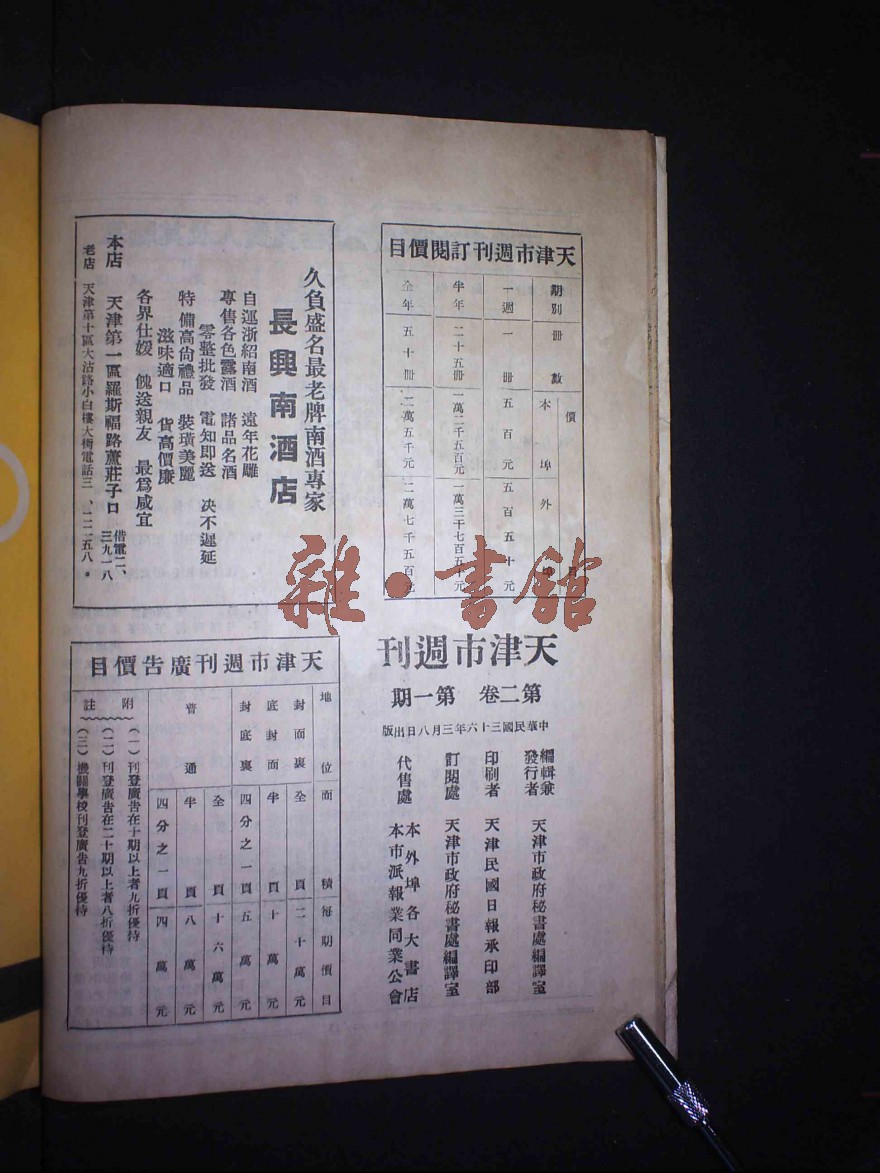 天津市週刊訂閱價目
期別 冊數 價目
本埠 外埠
一週 一冊 五百元 五百五十元
半年 二十五冊 一萬二千五百元 一萬三千七百五十元
全年 五十冊 二萬五千元 二萬七千五百元
天津市週刊
第二卷 第一期
中華民國三十六年三月八日出版
編輯兼發行者 天津市政府秘書處編譯室
印刷者 天津民國日報承印部
訂閱處 天津市政府秘書處編譯室
代售處 本外埠各大書店
本市派報業同業公會
久負盛名最老牌南酒專家
長興南酒店
自運浙紹南酒 遠年花雕
專售各色露酒 諸品名酒
零整批發 電知即送 決不遲延
特備高尙禮品 裝璜美麗
滋味適口 貨高價廉
各界仕媛 餽送親友 最爲咸宜
本店 天津第一區羅斯福路蘆莊子口 借電二、三九一八
老店 天津第十區大沽路小白樓大街電話三、一二二五八。
天津市週刊廣吿價目
地位 面積 每期價目
封面裏 全頁 二十萬元
底封面 半頁 十萬元
封底裏 四分之一頁 五萬元
普通 全頁 十六萬元
半頁 八萬元
四分之一頁 四萬元
附註
(一)刊登廣告在十期以上者九折優待
(二)刊登廣告在二十期以上者八折優待
(三)機關學校刊登廣告九折優待
雜·書館